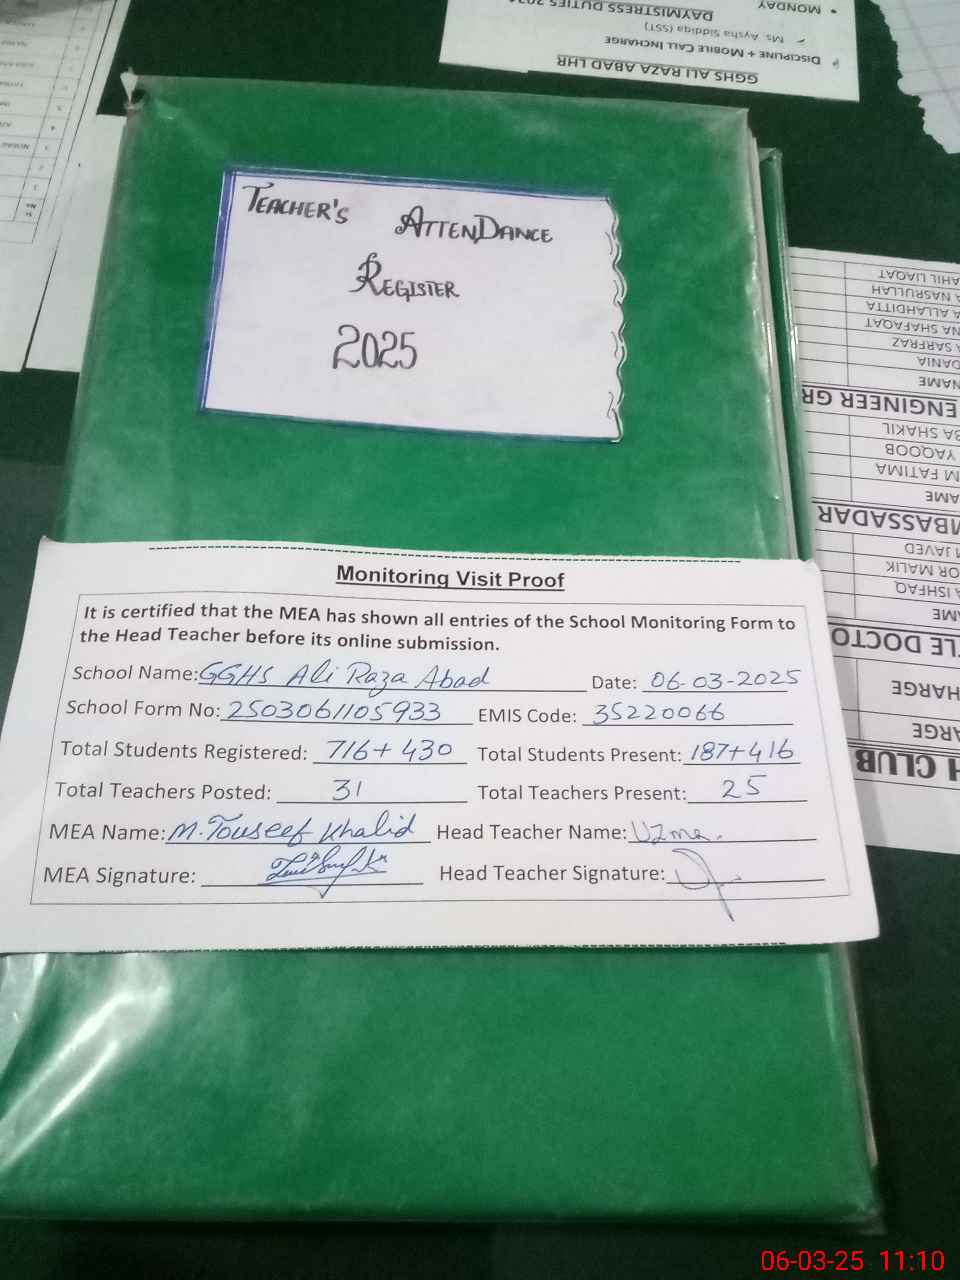 MONDAY
DAYMISTRESS DUTIES
Ms. Aysha Siddiqa (SST)
DISCIPLINE + MOBILE CALL INCHARGE
GGHS ALI RAZA ABAD LHR
TEACHER'S ATTENDANCE
REGISTER
2025
Monitoring Visit Proof
It is certified that the MEA has shown all entries of the School Monitoring Form to
the Head Teacher before its online submission.
School Name: GGHS Ali Raza Abad Date: 06-03-2025
School Form No: 2503061105933 EMIS Code: 35220066
Total Students Registered: 716+430 Total Students Present: 187+416
Total Teachers Posted: 31 Total Teachers Present: 25
MEA Name: M. Touseef Khalid Head Teacher Name: Uzma.
MEA Signature: Head Teacher Signature:
AHIL LIAQAT
NASRULLAH
ALLAHDITTA
NA SHAFAQAT
SARFRAZ
DANIA
NAME
ENGINEER GR
BA SHAKIL
YAQOOB
M FATIMA
AME
MBASSADAR
JAVED
OR MALIK
ISHFAQ
AME
TLE DOCTO
HARGE
ARGE
H CLUB
06-03-25 11:10